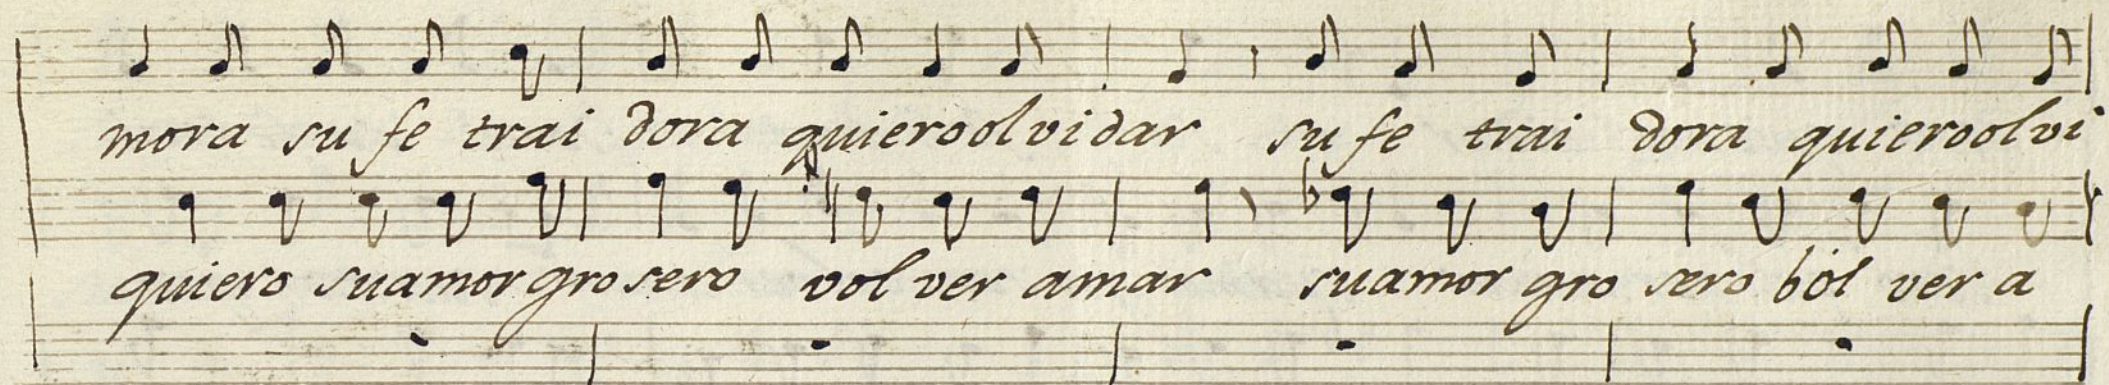 mora su fe trai dora quieroolvidar su fe trai dora quieroolvi
quiero suamor grosero volver amar suamor gro sero bol ver a